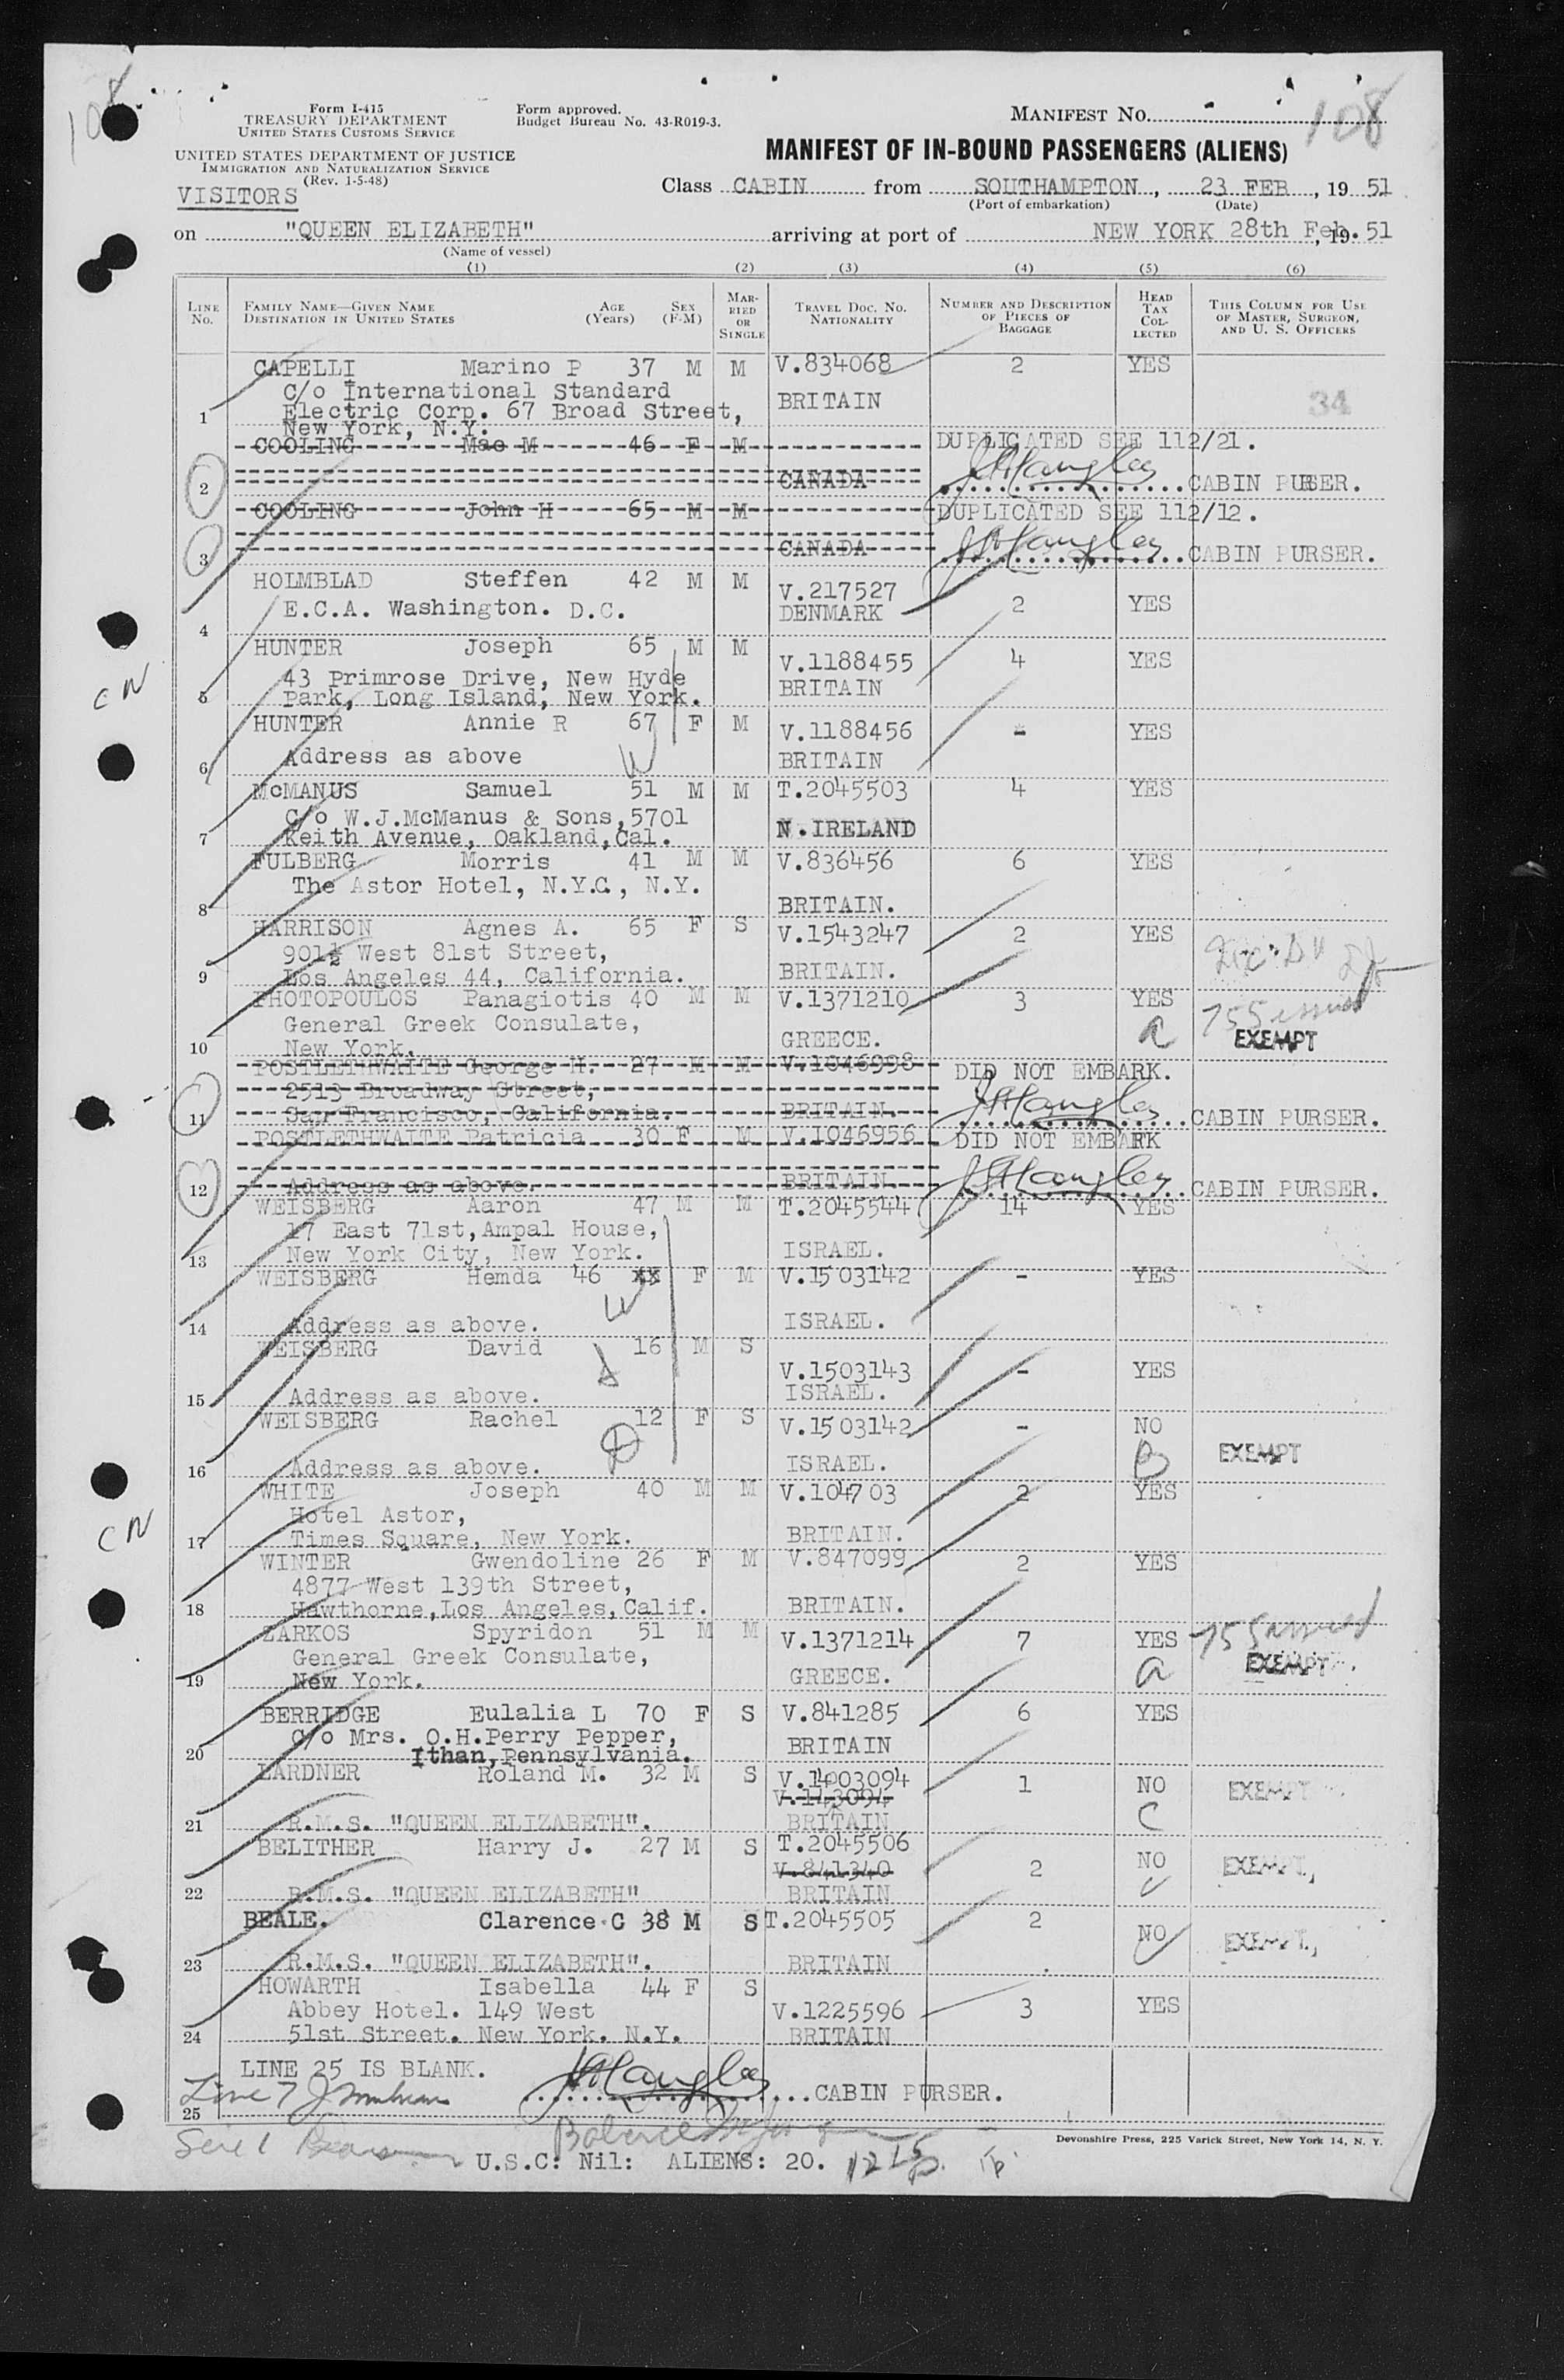 108
108
Form I-415
TREASURY DEPARTMENT
UNITED STATES CUSTOMS SERVICE
Form approved.
Budget Bureau No. 43-R019-3.
MANIFEST NO.
UNITED STATES DEPARTMENT OF JUSTICE
IMMIGRATION AND NATURALIZATION SERVICE
(Rev. 1-5-48)
MANIFEST OF IN-BOUND PASSENGERS (ALIENS)
VISITORS
Class CABIN from SOUTHAMPTON, 23 FEB, 19 51
(Port of embarkation) (Date)
on "QUEEN ELIZABETH" arriving at port of NEW YORK 28th Feb. 19 51
(Name of vessel)
(1) (2) (3) (4) (5) (6)
LINE No. FAMILY NAME—GIVEN NAME DESTINATION IN UNITED STATES AGE (Years) SEX (F-M) MARRIED OR SINGLE TRAVEL DOC. NO. NATIONALITY NUMBER AND DESCRIPTION OF PIECES OF BAGGAGE HEAD TAX COLLECTED THIS COLUMN FOR USE OF MASTER, SURGEON, AND U. S. OFFICERS
CAPELLI Marino P 37 M M V.834068 2 YES
C/o International Standard BRITAIN
1 Electric Corp. 67 Broad Street, 34
New York, N.Y.
COOLING Mae M 46 F M DUPLICATED SEE 112/21.
2 CANADA CABIN PURSER.
COOLING John H 65 M M DUPLICATED SEE 112/12.
3 CANADA CABIN PURSER.
HOLMBLAD Steffen 42 M M V.217527
E.C.A. Washington. D.C. DENMARK 2 YES
4
HUNTER Joseph 65 M M V.1188455 4 YES
43 Primrose Drive, New Hyde BRITAIN
5 Park, Long Island, New York.
HUNTER Annie R 67 F M V.1188456 - YES
6 Address as above BRITAIN
McMANUS Samuel 51 M M T.2045503 4 YES
C/o W.J.McManus & Sons,5701 N.IRELAND
7 Keith Avenue, Oakland,Cal.
FULBERG Morris 41 M M V.836456 6 YES
The Astor Hotel, N.Y.C., N.Y.
8 BRITAIN.
HARRISON Agnes A. 65 F S V.1543247 2 YES
901½ West 81st Street,
9 Los Angeles 44, California. BRITAIN.
PHOTOPOULOS Panagiotis 40 M M V.1371210 3 YES 755 issued
General Greek Consulate, GREECE. a EXEMPT
10 New York.
POSTLETHWAITE George H. 27 M M V.1046998 DID NOT EMBARK.
2513 Broadway Street,
11 San Francisco, California. BRITAIN. CABIN PURSER.
POSTLETHWAITE Patricia 30 F M V.1046956 DID NOT EMBARK
12 Address as above. BRITAIN CABIN PURSER.
WEISBERG Aaron 47 M M T.2045544 14 YES
17 East 71st, Ampal House,
13 New York City, New York. ISRAEL.
WEISBERG Hemda 46 xx F M V.1503142 - YES
14 Address as above. ISRAEL.
WEISBERG David 16 M S V.1503143 - YES
15 Address as above. ISRAEL.
WEISBERG Rachel 12 F S V.1503142 - NO
16 Address as above. ISRAEL. B EXEMPT
WHITE Joseph 40 M M V.104703 2 YES
Hotel Astor,
17 Times Square, New York. BRITAIN.
WINTER Gwendoline 26 F M V.847099 2 YES
4877 West 139th Street,
18 Hawthorne,Los Angeles,Calif. BRITAIN.
ZARKOS Spyridon 51 M M V.1371214 7 YES 755 issued
General Greek Consulate, a EXEMPT
19 New York. GREECE.
BERRIDGE Eulalia L 70 F S V.841285 6 YES
C/o Mrs. O.H.Perry Pepper, BRITAIN
20 Ithan, Pennsylvania.
LARDNER Roland M. 32 M S V.1403094 1 NO EXEMPT
V.143094 C
21 R.M.S. "QUEEN ELIZABETH". BRITAIN
BELITHER Harry J. 27 M S T.2045506
V.841340 2 NO EXEMPT
22 R.M.S. "QUEEN ELIZABETH" BRITAIN
BEALE. Clarence C 38 M S T.2045505 2 NO EXEMPT
23 R.M.S. "QUEEN ELIZABETH". BRITAIN
HOWARTH Isabella 44 F S V.1225596 3 YES
Abbey Hotel. 149 West
24 51st Street. New York. N.Y. BRITAIN
LINE 25 IS BLANK.
Line 7 CABIN PURSER.
25
Devonshire Press, 225 Varick Street, New York 14, N. Y.
U.S.C: Nil: ALIENS: 20.
CN
CN